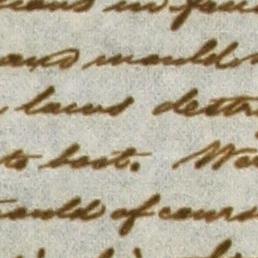 in fav
and would
laws destr
to boot. We
would of cours